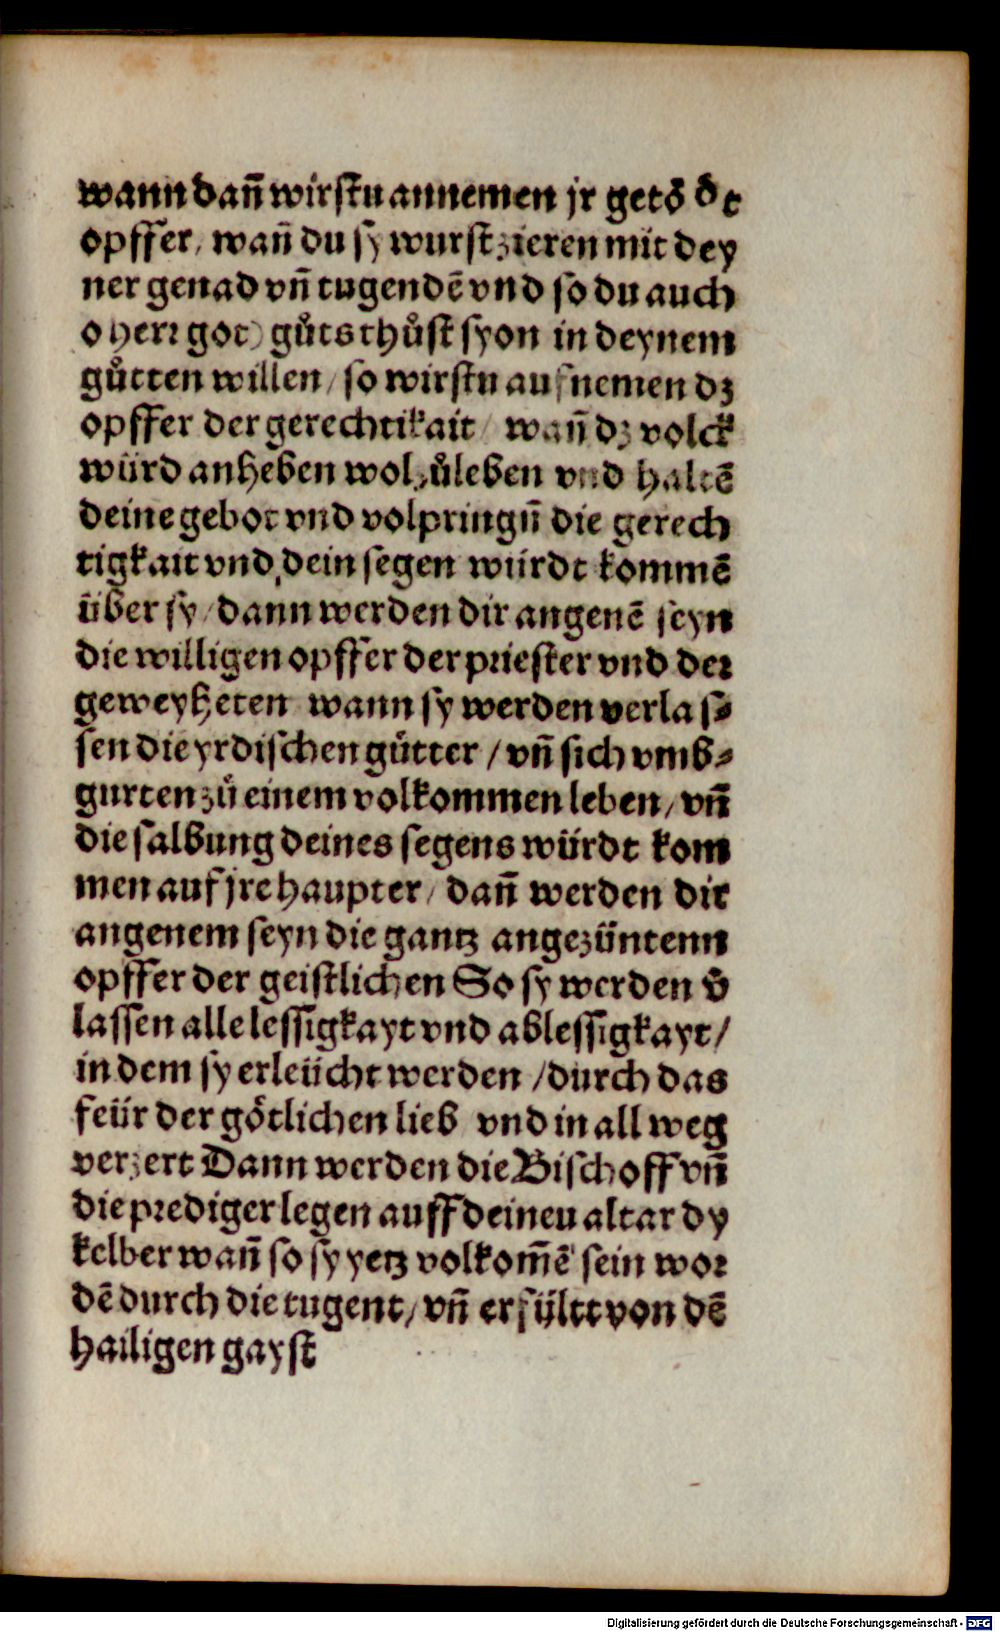 wann dañ wirstu annemen jr getō d̄t
opffer, wañ du sy wurst zieren mit dey
ner genad vñ tugendē vnd so du auch
o herr got) gůts thůst syon in deynem
gůtten willen / so wirstu aufnemen dz
opffer der gerechtikait / wañ dz volck
würd anheben wolzůleben vnd haltē
deine gebot vnd volpringñ die gerech
tigkait vnd dein segen würdt kommē
über sy / dann werden dir angenē seyn
die willigen opffer der priester vnd der
geweyheten wann sy werden verlas⸗
sen die yrdischen gůtter / vñ sich vmb⸗
gurten zů einem volkommen leben / vñ
die salbung deines segens würdt kom
men auf jre haupter / dañ werden dir
angenem seyn die gantz angezüntenn
opffer der geistlichen So sy werden v̄
lassen alle lessigkayt vnd ablessigkayt /
in dem sy erleücht werden / durch das
feür der götlichen lieb vnd in all weg
verzert Dann werden die Bischoff vñ
die prediger legen auff deineu altar dy
kelber wañ so sy yetz volkom̄ē sein wor
dē durch die tugent / vñ erfültt von dē
hailigen gayst
Digitalisierung gefördert durch die Deutsche Forschungsgemeinschaft - DFG